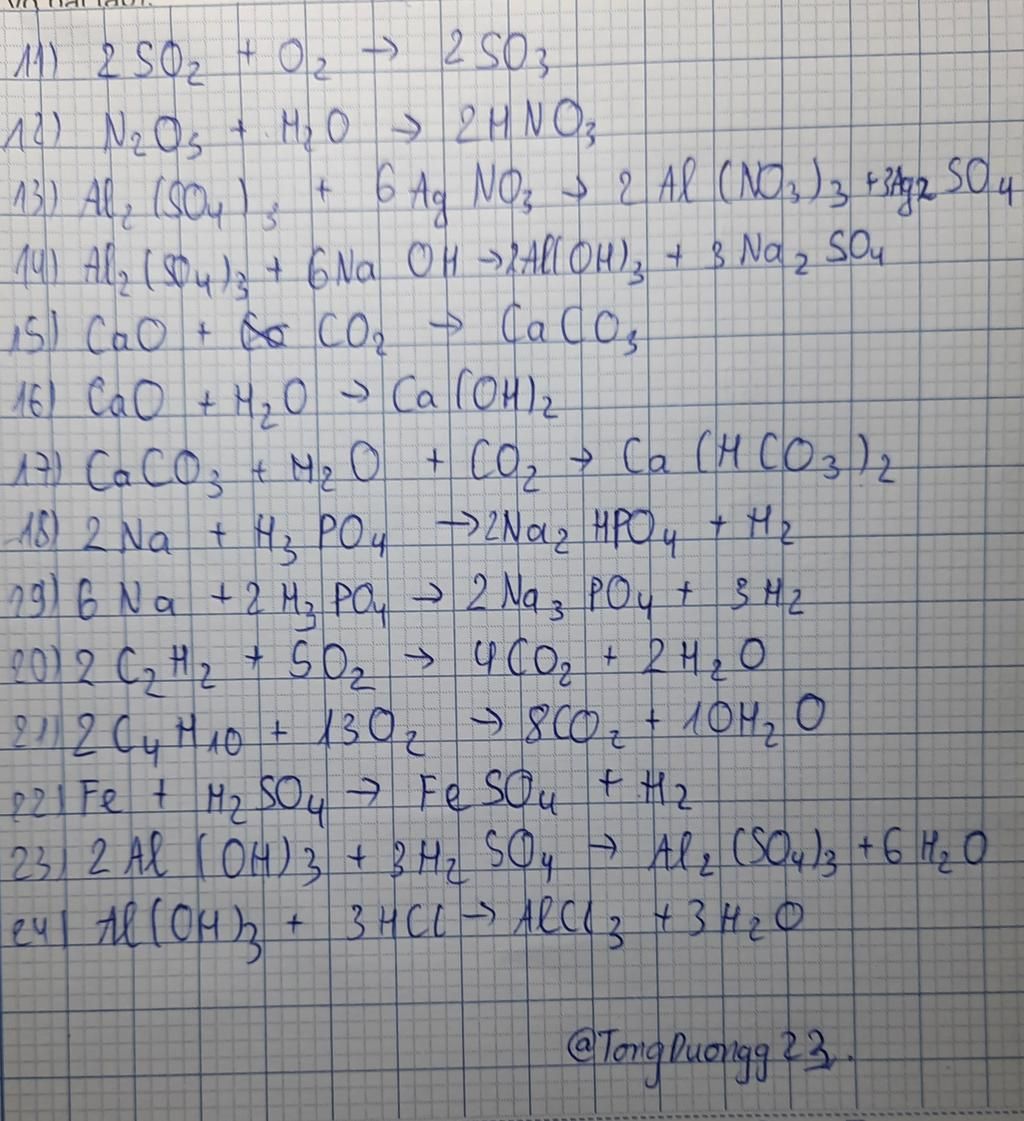 11) 2SO₂ + O₂ → 2SO₃
12) N₂O₅ + H₂O → 2HNO₃
13) Al₂(SO₄)₃ + 6AgNO₃ → 2Al(NO₃)₃ + 3Ag₂SO₄
14) Al₂(SO₄)₃ + 6NaOH → 2Al(OH)₃ + 3Na₂SO₄
15) CaO + CO₂ → CaCO₃
16) CaO + H₂O → Ca(OH)₂
17) CaCO₃ + H₂O + CO₂ → Ca(HCO₃)₂
18) 2Na + H₃PO₄ → 2Na₂HPO₄ + H₂
19) 6Na + 2H₃PO₄ → 2Na₃PO₄ + 3H₂
20) 2C₂H₂ + 5O₂ → 4CO₂ + 2H₂O
21) 2C₄H₁₀ + 13O₂ → 8CO₂ + 10H₂O
22) Fe + H₂SO₄ → FeSO₄ + H₂
23) 2Al(OH)₃ + 3H₂SO₄ → Al₂(SO₄)₃ + 6H₂O
24) Al(OH)₃ + 3HCl → AlCl₃ + 3H₂O
@TongDuongg23.